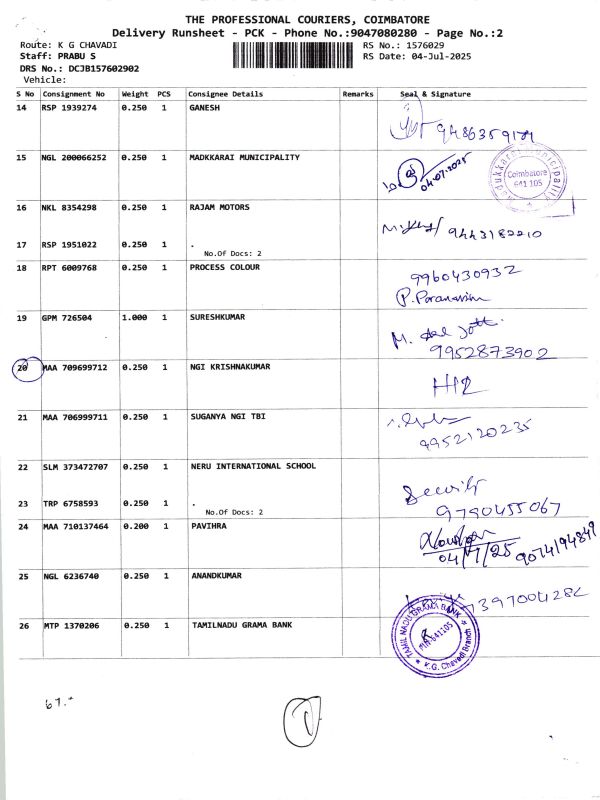 THE PROFESSIONAL COURIERS, COIMBATORE
Delivery Runsheet - PCK - Phone No.:9047080280 - Page No.:2
Route: K G CHAVADI RS No.: 1576029
Staff: PRABU S RS Date: 04-Jul-2025
DRS No.: DCJB157602902
Vehicle:
S No Consignment No Weight PCS Consignee Details Remarks Seal & Signature
14 RSP 1939274 0.250 1 GANESH
15 NGL 200066252 0.250 1 MADKKARAI MUNICIPALITY
04-07-2025
Madukkarai Municipality
Coimbatore
641 105
16 NKL 8354298 0.250 1 RAJAM MOTORS
9443182210
17 RSP 1951022 0.250 1 .
No.Of Docs: 2
18 RPT 6009768 0.250 1 PROCESS COLOUR
9960430932
19 GPM 726504 1.000 1 SURESHKUMAR
9952873902
20 MAA 709699712 0.250 1 NGI KRISHNAKUMAR
21 MAA 706999711 0.250 1 SUGANYA NGI TBI
9952120235
22 SLM 373472707 0.250 1 NERU INTERNATIONAL SCHOOL
23 TRP 6758593 0.250 1 .
No.Of Docs: 2
9790455067
24 MAA 710137464 0.200 1 PAVIHRA
04/7/25 9074194849
25 NGL 6236740 0.250 1 ANANDKUMAR
26 MTP 1370206 0.250 1 TAMILNADU GRAMA BANK
TAMIL NADU GRAMA BANK
PIN-641105
K.G. Chavadi Branch